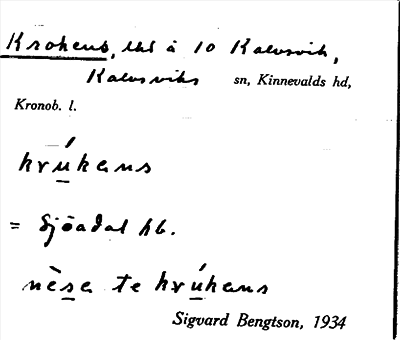 Krokens, lht å 10 Kalvsvik,
Kalvsviks sn, Kinnevalds hd,
Kronob. l.
krúkans
= Sjöadal hb.
nèsa te krúkans
Sigvard Bengtson, 1934